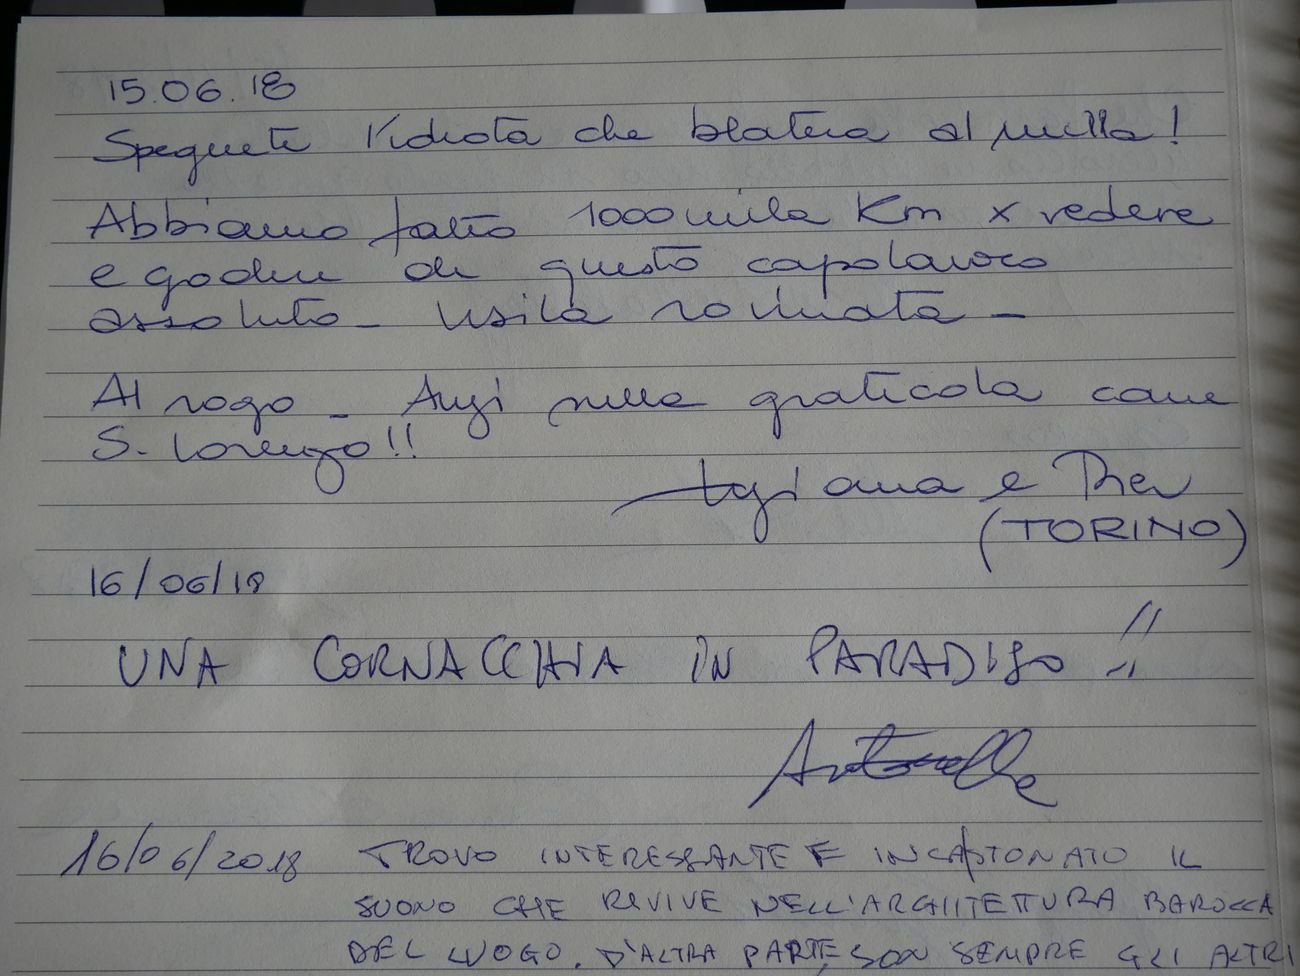 15.06.18
Spegnete l'idiota che blatera al nulla!
Abbiamo fatto 1000mila Km x vedere
e godere di questo capolavoro
assoluto - Visita rovinata -
Al rogo - Anzi nella graticola come
S. Lorenzo!!
e
(TORINO)
16/06/18
UNA CORNACCHIA IN PARADISO!!
Antonella
16/06/2018 TROVO INTERESSANTE E INCASTONATO IL
SUONO CHE RIVIVE NELL'ARCHITETTURA BAROCCA
DEL LUOGO. D'ALTRA PARTE, SON SEMPRE GLI ALTRI